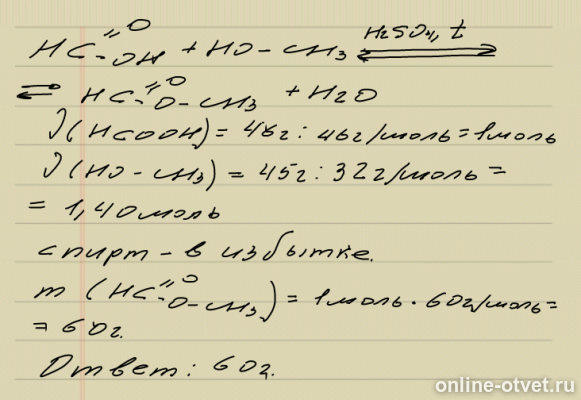 HC=O-OH + HO-CH3 ⇄ H2SO4, t
⇄ HC=O-O-CH3 + H2O
ν(HCOOH) = 46г : 46г/моль = 1моль
ν(HO-CH3) = 45г : 32г/моль =
= 1,40моль
спирт - в избытке.
m (HC=O-O-CH3) = 1моль · 60г/моль =
= 60г.
Ответ: 60г.
online-otvet.ru